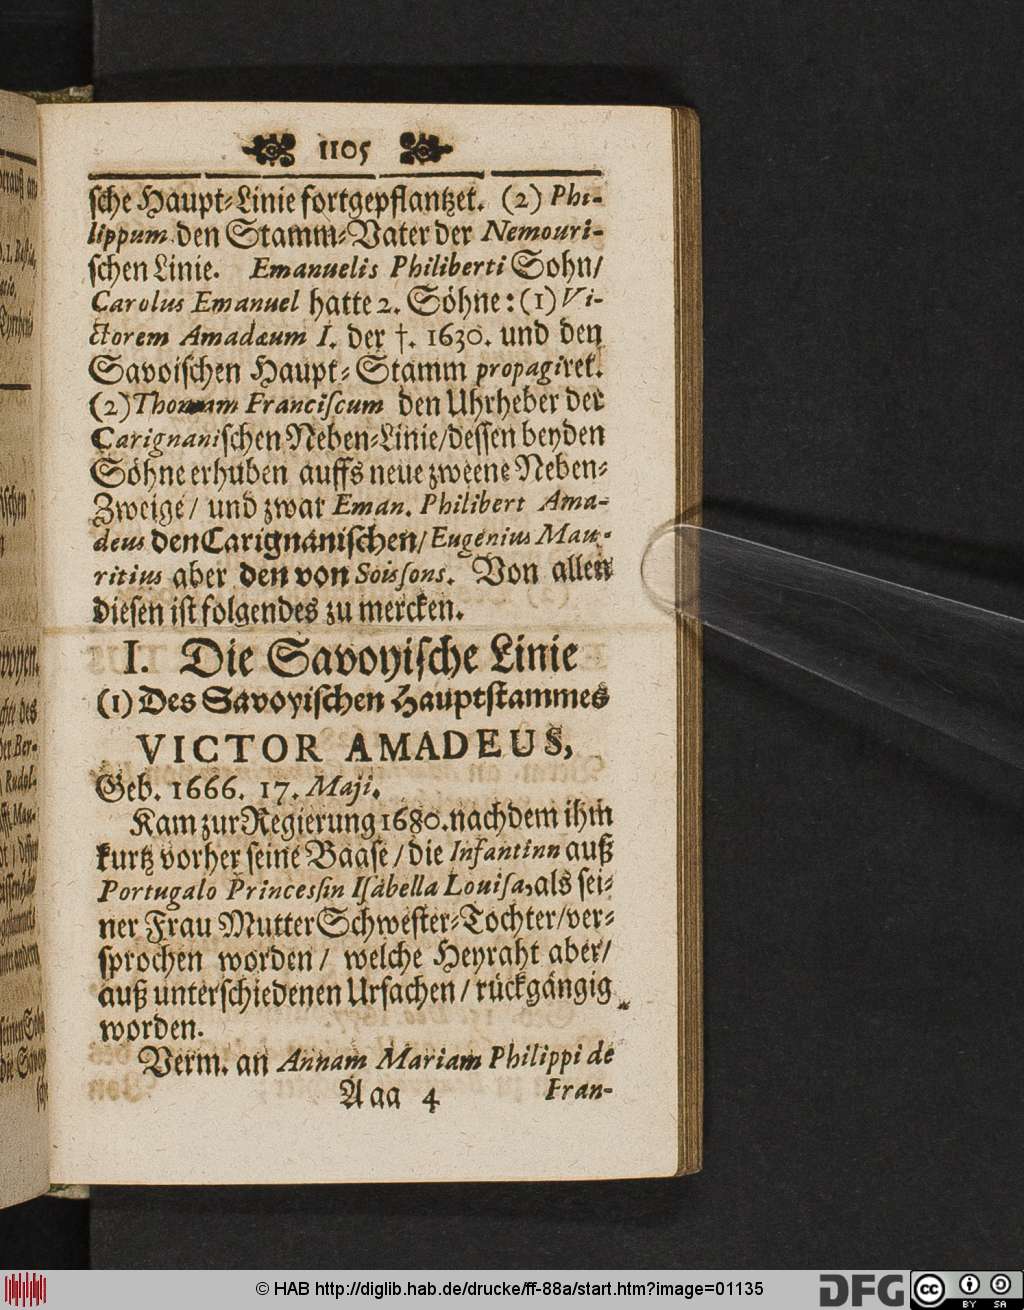 1105
ſche Haupt-Linie fortgepflantzet. (2) Phi-
lippum den Stamm-Vater der Nemouri-
ſchen Linie. Emanuelis Philiberti Sohn/
Carolus Emanuel hatte 2. Söhne: (1) Vi-
ctorem Amadæum I. der †. 1630. und den
Savoiſchen Haupt-Stamm propagiret.
(2) Thomam Franciſcum den Uhrheber der
Carignaniſchen Neben-Linie/deſſen beyden
Söhne erhuben auffs neue zweene Neben-
Zweige/ und zwar Eman. Philibert Ama-
deus den Carignaniſchen/ Eugenius Mau-
ritius aber den von Soiſſons. Von allen
dieſen iſt folgendes zu mercken.
I. Die Savoyiſche Linie
(1) Des Savoyiſchen Hauptſtammes
VICTOR AMADEUS,
Geb. 1666. 17. Maji.
Kam zur Regierung 1680. nachdem ihm
kurtz vorher ſeine Baaſe/ die Infantinn auß
Portugalo Princeſſin Iſabella Louiſa, als ſei-
ner Frau Mutter Schweſter-Tochter/ver-
ſprochen worden/ welche Heyraht aber/
auß unterſchiedenen Urſachen/ rückgängig
worden.
Verm. an Annam Mariam Philippi de
Aaa 4 Fran-
© HAB http://diglib.hab.de/drucke/ff-88a/start.htm?image=01135
DFG cc BY SA